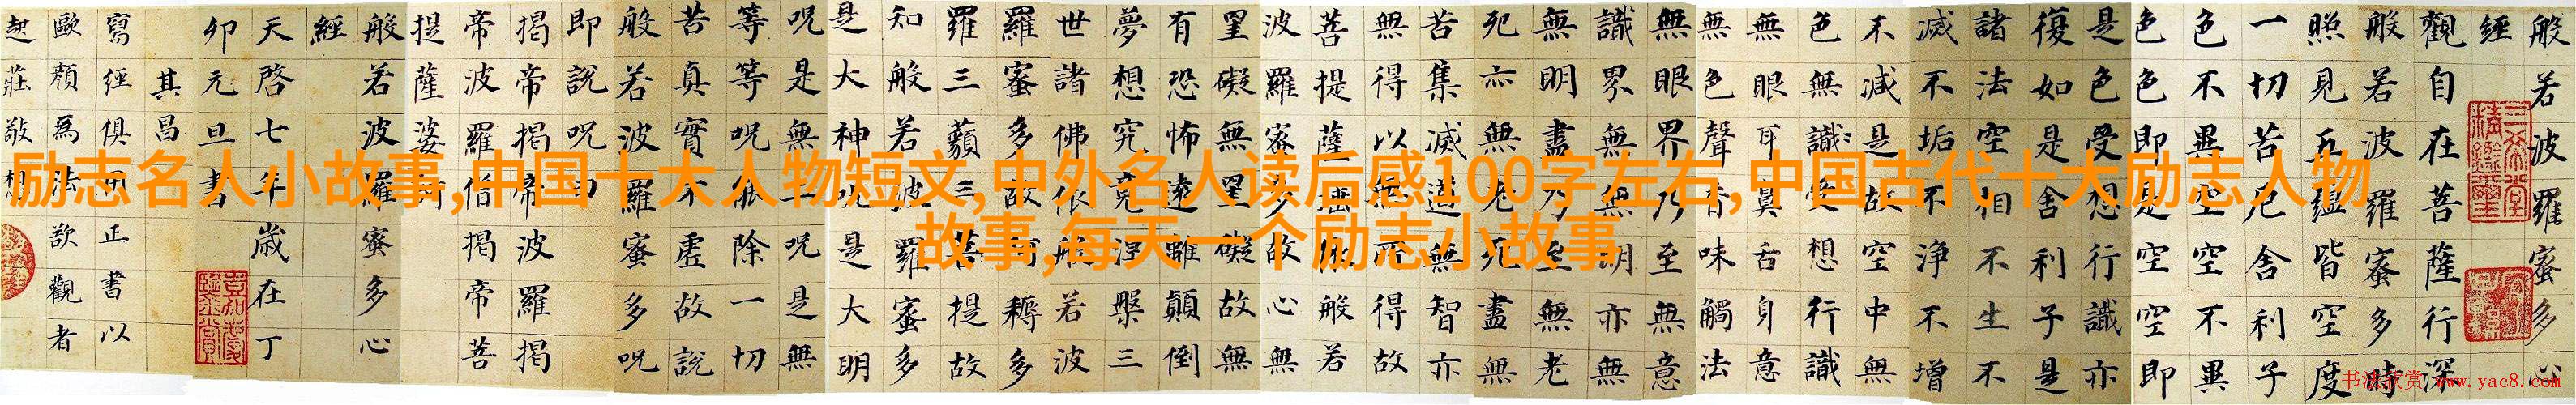 励志名人小故事,中国十大人物短文,中外名人读后感100字左右,中国古代十大励志人物
故事,每天一个励志小故事
般若波羅蜜多心
經
觀自在菩薩行深
般若波羅蜜多時
照見五蘊皆空度
一切苦厄舍利子
色不異空空不異
色色即是空空即
是色受想行識亦
復如是舍利子是
諸法空相不生不
滅不垢不淨不增
不減是故空中無
色無識受想行識
無眼耳鼻舌身意
無色聲香味觸法
無眼界乃至無意
識界無無明亦無
無明盡乃至無老
死亦無老死盡無
苦集滅道無智亦
無得以無所得故
菩提薩埵依般若
波羅蜜多故心無
罣礙無罣礙故無
有恐怖遠離顛倒
夢想究竟涅槃三
世諸佛依般若波
羅蜜多故 耨多
羅三藐三菩提故
知般若波羅蜜多
是大神咒是大明
呪是無上呪是無
等等呪能除一切
苦真實不虛故說
般若波羅蜜多呪
即說呪曰
揭帝揭帝波羅揭
帝波羅僧揭帝菩
提薩婆訶
般若波羅蜜多心
經
天啓七年歲在丁
卯元旦書
其昌
寫經俱用正書以
歐顏為法欲觀者
起莊敬想
书法欣赏 www.yac8.com